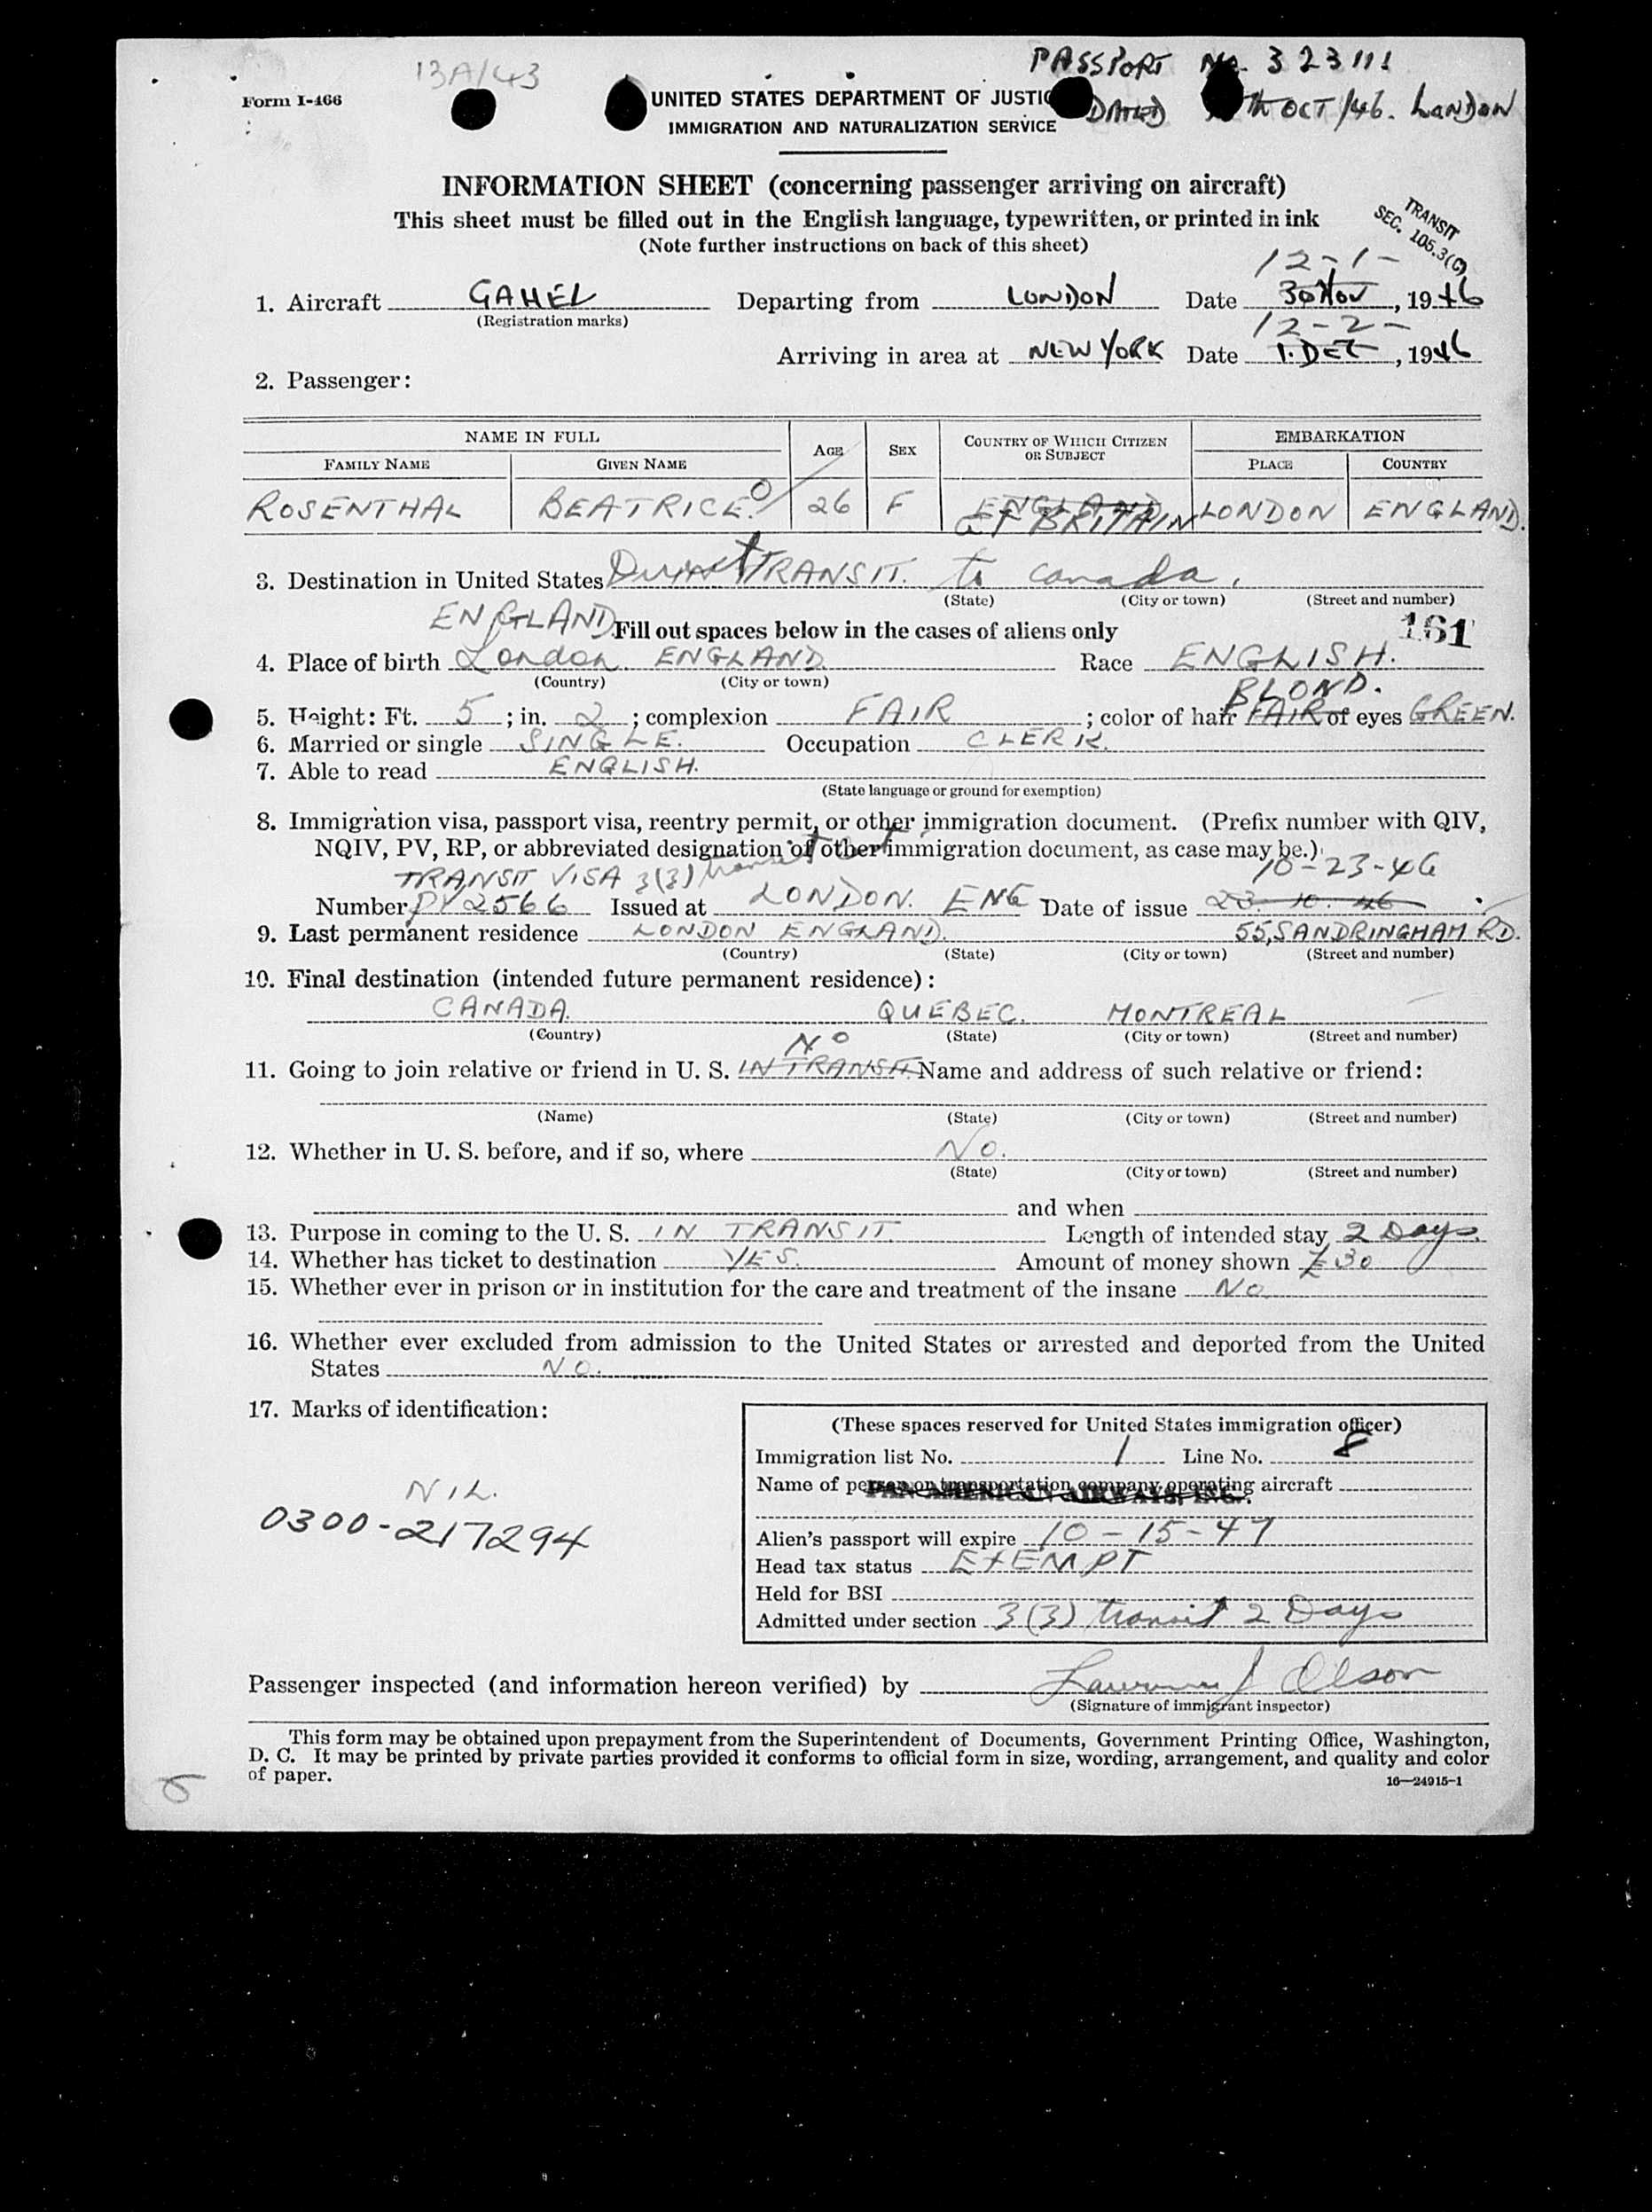 13A/43
PASSPORT No. 323111
Form I-466
UNITED STATES DEPARTMENT OF JUSTIC
DATED TH OCT/46. LONDON
IMMIGRATION AND NATURALIZATION SERVICE
INFORMATION SHEET (concerning passenger arriving on aircraft)
This sheet must be filled out in the English language, typewritten, or printed in ink
(Note further instructions on back of this sheet)
TRANSIT
SEC. 105.3(C)
12-1-
1. Aircraft GAHEL Departing from LONDON Date 30 NOV, 1946
(Registration marks)
12-2-
Arriving in area at NEW YORK Date 1. DEC, 1946
2. Passenger:
NAME IN FULL AGE SEX COUNTRY OF WHICH CITIZEN OR SUBJECT EMBARKATION
FAMILY NAME GIVEN NAME PLACE COUNTRY
ROSENTHAL BEATRICE. 26 F ENGLAND LONDON ENGLAND.
GT BRITAIN
3. Destination in United States TRANSIT. to Canada.
(State) (City or town) (Street and number)
ENGLAND Fill out spaces below in the cases of aliens only 161
4. Place of birth London ENGLAND. Race ENGLISH.
(Country) (City or town)
BLOND.
5. Height: Ft. 5; in. 2; complexion FAIR; color of hair FAIR of eyes GREEN.
6. Married or single SINGLE. Occupation CLERK.
7. Able to read ENGLISH.
(State language or ground for exemption)
8. Immigration visa, passport visa, reentry permit, or other immigration document. (Prefix number with QIV,
NQIV, PV, RP, or abbreviated designation of other immigration document, as case may be.)
TRANSIT VISA 3(3) transit 10-23-46
Number PV 2566 Issued at LONDON. ENG Date of issue 23. 10. 46
9. Last permanent residence LONDON ENGLAND. 55, SANDRINGHAM RD.
(Country) (State) (City or town) (Street and number)
10. Final destination (intended future permanent residence):
CANADA. QUEBEC. MONTREAL
(Country) (State) (City or town) (Street and number)
NO
11. Going to join relative or friend in U. S. IN TRANSIT. Name and address of such relative or friend:
(Name) (State) (City or town) (Street and number)
12. Whether in U. S. before, and if so, where No.
(State) (City or town) (Street and number)
and when
13. Purpose in coming to the U. S. IN TRANSIT. Length of intended stay 2 Days.
14. Whether has ticket to destination YES. Amount of money shown £30
15. Whether ever in prison or in institution for the care and treatment of the insane No
16. Whether ever excluded from admission to the United States or arrested and deported from the United
States NO.
17. Marks of identification:
NIL.
0300-217294
(These spaces reserved for United States immigration officer)
Immigration list No. 1 Line No. 8
Name of person or transportation company operating aircraft
PAN AMERICAN AIRWAYS, INC.
Alien's passport will expire 10-15-47
Head tax status EXEMPT
Held for BSI
Admitted under section 3(3) transit 2 Days
Passenger inspected (and information hereon verified) by Lawrence J Olson
(Signature of immigrant inspector)
This form may be obtained upon prepayment from the Superintendent of Documents, Government Printing Office, Washington,
D. C. It may be printed by private parties provided it conforms to official form in size, wording, arrangement, and quality and color
of paper.
16—24915-1